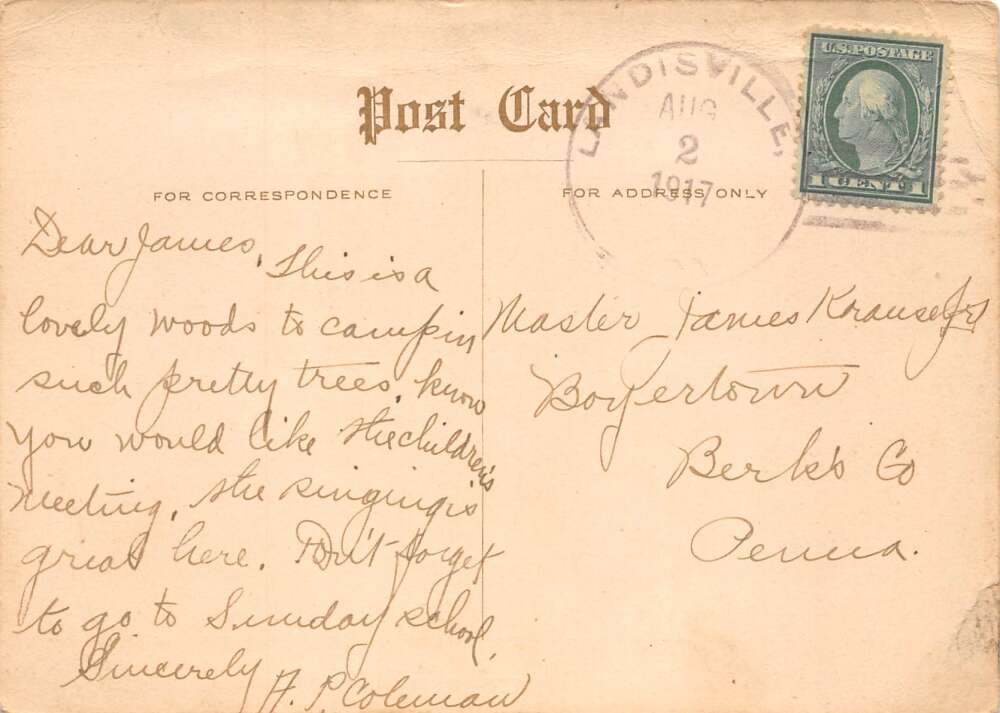 Post Card
FOR CORRESPONDENCE
FOR ADDRESS ONLY
LANDISVILLE,
AUG
2
1917
U.S. POSTAGE
1 CENT 1
Dear James, This is a
lovely woods to camp in
such pretty trees, know
you would like the children's
meeting, the singing is
great here. Don't forget
to go to Sunday school.
Sincerely
A. P. Coleman
Master James Krause Jr
Boyertown
Berk's Co
Penna.